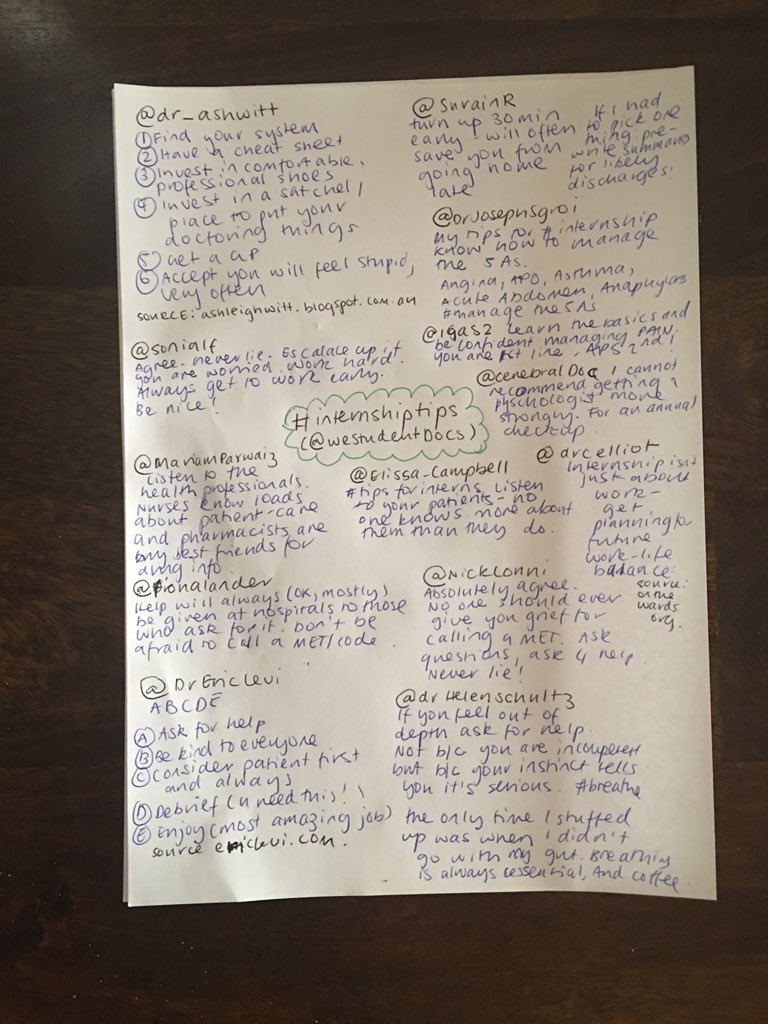 @dr_ashwitt
① Find your system
② Have a cheat sheet
③ Invest in comfortable,
professional shoes
④ Invest in a satchel/
place to put your
doctoring things
⑤ Get a GP
⑥ Accept you will feel stupid,
very often
source: ashleighwitt.blogspot.com.au
@sonialf
Agree. never lie. Escalate up if
you are worried. work hard.
Always get to work early.
Be nice!
@SnrainR
turn up 30 min
early! will often
save you from
going home
late
If I had
to pick one
thing pre-
write summaries
for likely
discharges!
@drjosephsgroi
My tips for #internship
know how to manage
the 5 As.
Angina, APO, Asthma,
Acute Abdomen, Anaphylaxis
#manage the 5As
@igas2 learn the basics and
be confident managing PAIN.
you are 1st line, APS 2nd!
@cerebralDoc I cannot
recommend getting a
pyschologist more
strongly. For an annual
checkup.
#internshiptips
(@westudentDocs)
@MariamParwaiz
Listen to the
health professionals.
Nurses know loads
about patient-care
and pharmacists are
my best friends for
drug info.
@Elissa_Campbell
#tips for interns. Listen
to your patients - no
one knows more about
them than they do.
@drcelliot
Internship isn't
just about
work-
get
planning for
future
work-life
balance.
source:
onthe
wards
org.
@fionalander
Help will always (OK, mostly)
be given at hospitals to those
who ask for it. Don't be
afraid to call a MET/code.
@NickLonni
Absolutely agree.
No one should ever
give you grief for
calling a MET. Ask
questions, ask 4 help.
Never lie!
@DrEricLevi
ABCDE
Ⓐ Ask for help
Ⓑ Be kind to everyone
Ⓒ Consider patient first
and always
Ⓓ Debrief (u need this!)
Ⓔ Enjoy (most amazing job)
source ericlevi.com.
@drHelenschultz
If you feel out of
depth ask for help.
Not b/c you are incompetent
but b/c your instinct tells
you it's serious. #breathe
the only time I stuffed
up was when I didn't
go with my gut. Breathing
is always essential, And coffee.